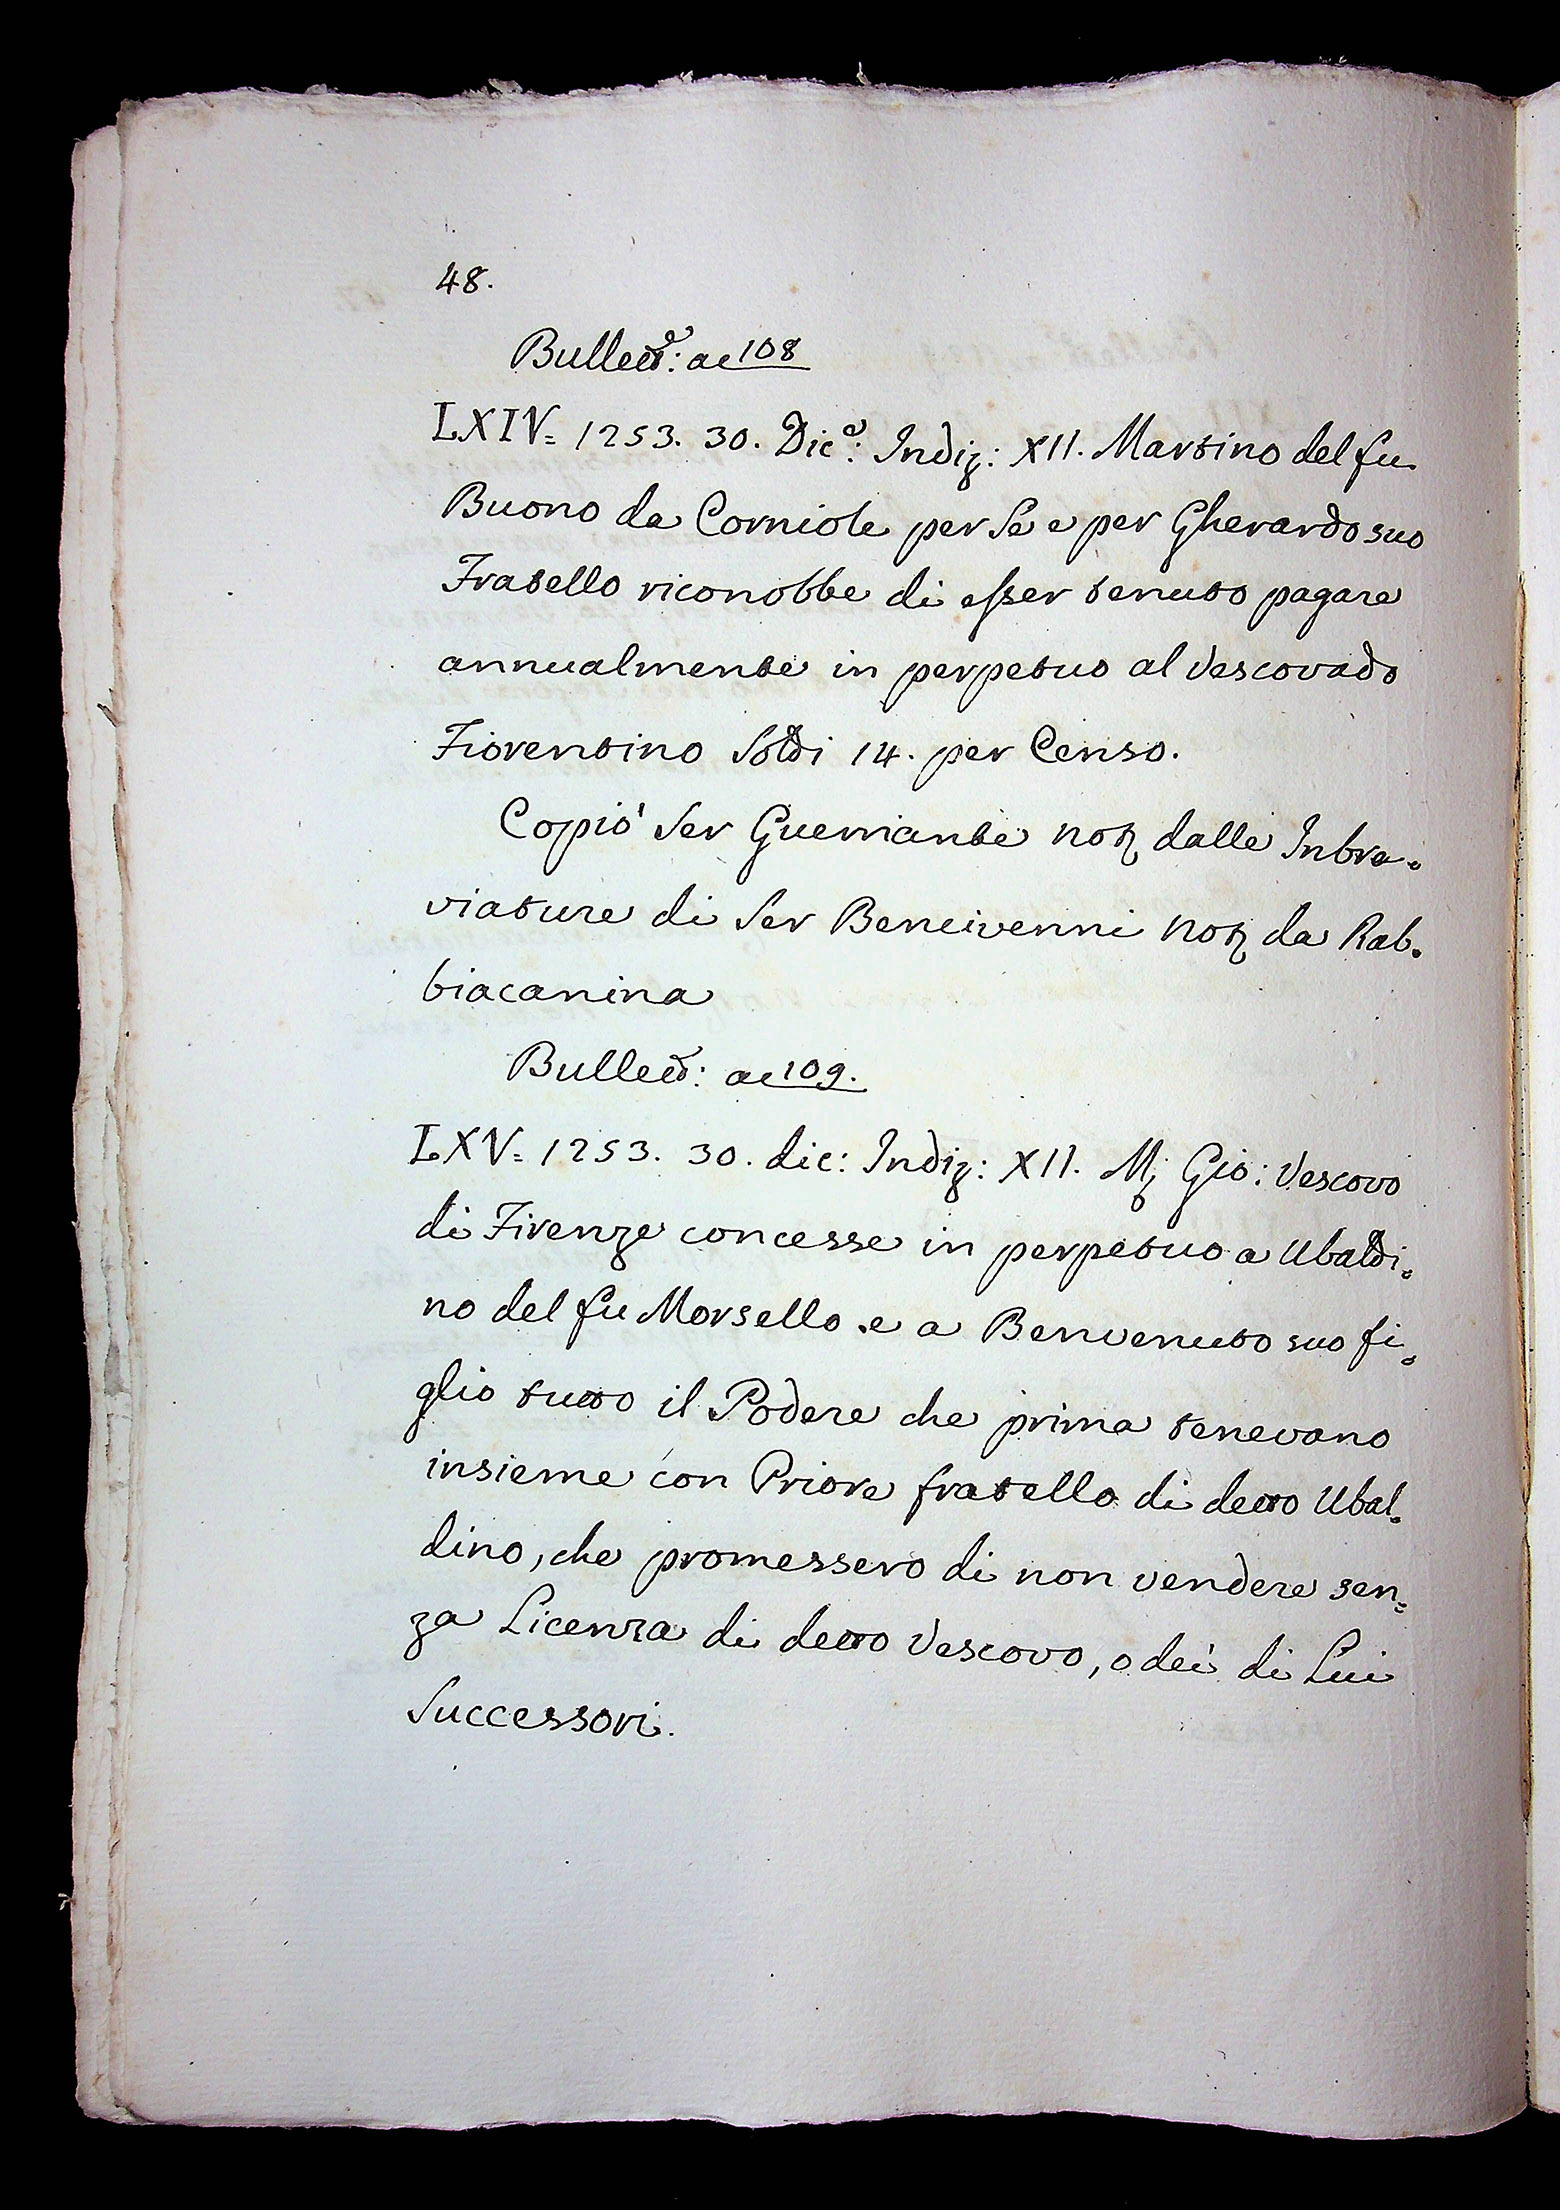 48.
Bullett.e: ac 108
LXIV= 1253. 30. Dic.e: Indiz: XII. Martino del fu
Buono da Corniole per Se e per Gherardo suo
Fratello riconobbe di esser tenuto pagare
annualmente in perpetuo al Vescovado
Fiorentino Soldi 14. per Censo.
Copiò Ser Guerriante Not. dalle Inbre=
viature di Ser Bencivenni Not. da Rab=
biacanina
Bullett: ac 109.
LXV= 1253. 30. dic: Indiz: XII. M. Gio: Vescovo
di Firenze concesse in perpetuo a Ubaldi=
no del fu Morsello e a Benvenuto suo fi=
glio tutto il Podere che prima tenevano
insieme con Priore fratello di detto Ubal=
dino, che promessero di non vendere sen=
za Licenza di detto Vescovo, o dei di Lui
Successori.